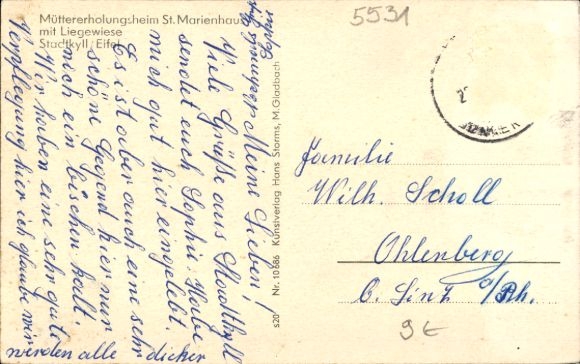 5531
Müttererholungsheim St. Marienhaus
mit Liegewiese
Stadtkyll/Eifel
Meine Lieben!
Viele Grüße aus Stadtkyll
sendet euch Sophie. Habe
mich gut hier eingelebt.
Es ist aber auch eine sehr
schöne Gegend hier nur
mich ein bischen kalt.
Wir haben eine sehr gute
Verpflegung hier ich glaube wir
werden alle dicker
s20 Nr. 10686 Kunstverlag Hans Storms, M.Gladbach
Familie
Wilh. Scholl
Ohlenberg
b. Linz a/Rh.
9€